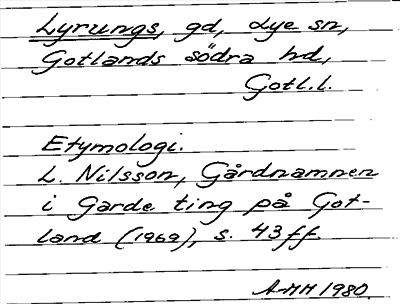 Lyrungs, gd, Lye sn,
Gotlands södra hd,
Gotl.l.
Etymologi.
L. Nilsson, Gårdnamnen
i Garde ting på Got-
land (1969), s. 43 ff.
AMM 1980.